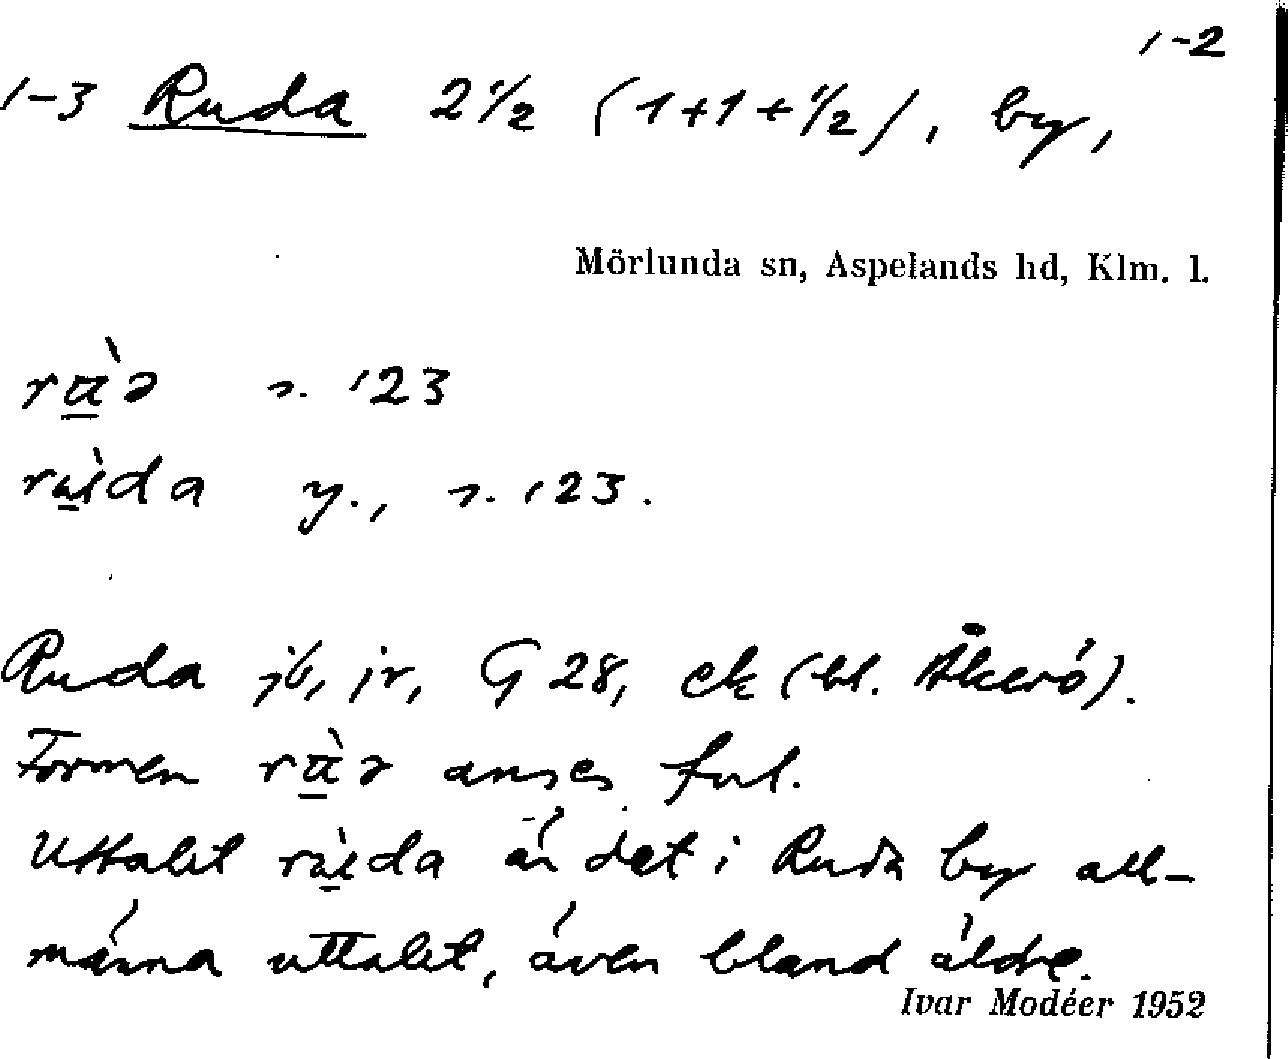 1-2
1-3 Ruda 2 1/2 (1+1+1/2), by,
Mörlunda sn, Aspelands hd, Klm. l.
s. 123
y., s. 123.
Ruda jb, jr, G 28, ek (bl. Åkerö).
Formen anses ful.
Uttalet är det i Ruda by all-
männa uttalet, även bland äldre.
Ivar Modéer 1952